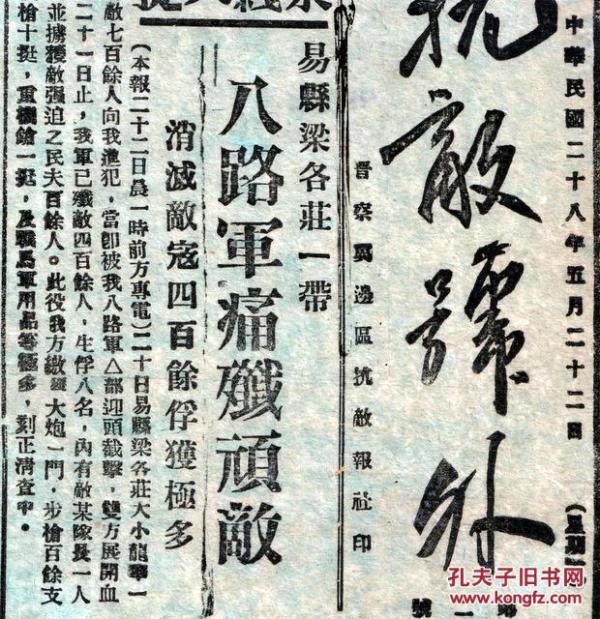 中華民國二十八年五月二十二日
抗敵號外
號
晉察冀邊區抗敵報社印
易縣梁各莊一帶
八路軍痛殲頑敵
消滅敵寇四百餘俘獲極多
(本報二十二日晨一時前方專電)二十日易縣梁各莊大小龍華一
敵七百餘人向我進犯，當即被我八路軍△部迎頭截擊，雙方展開血
二十一日止，我軍已殲敵四百餘人，生俘八名，內有敵某隊長一人
並擄獲敵强迫之民夫百餘人。此役我方繳獲大炮一門，步槍百餘支
槍十挺，重機鎗一挺，及戰馬軍用品等極多，刻正清查中。
孔夫子旧书网
kongfz.com